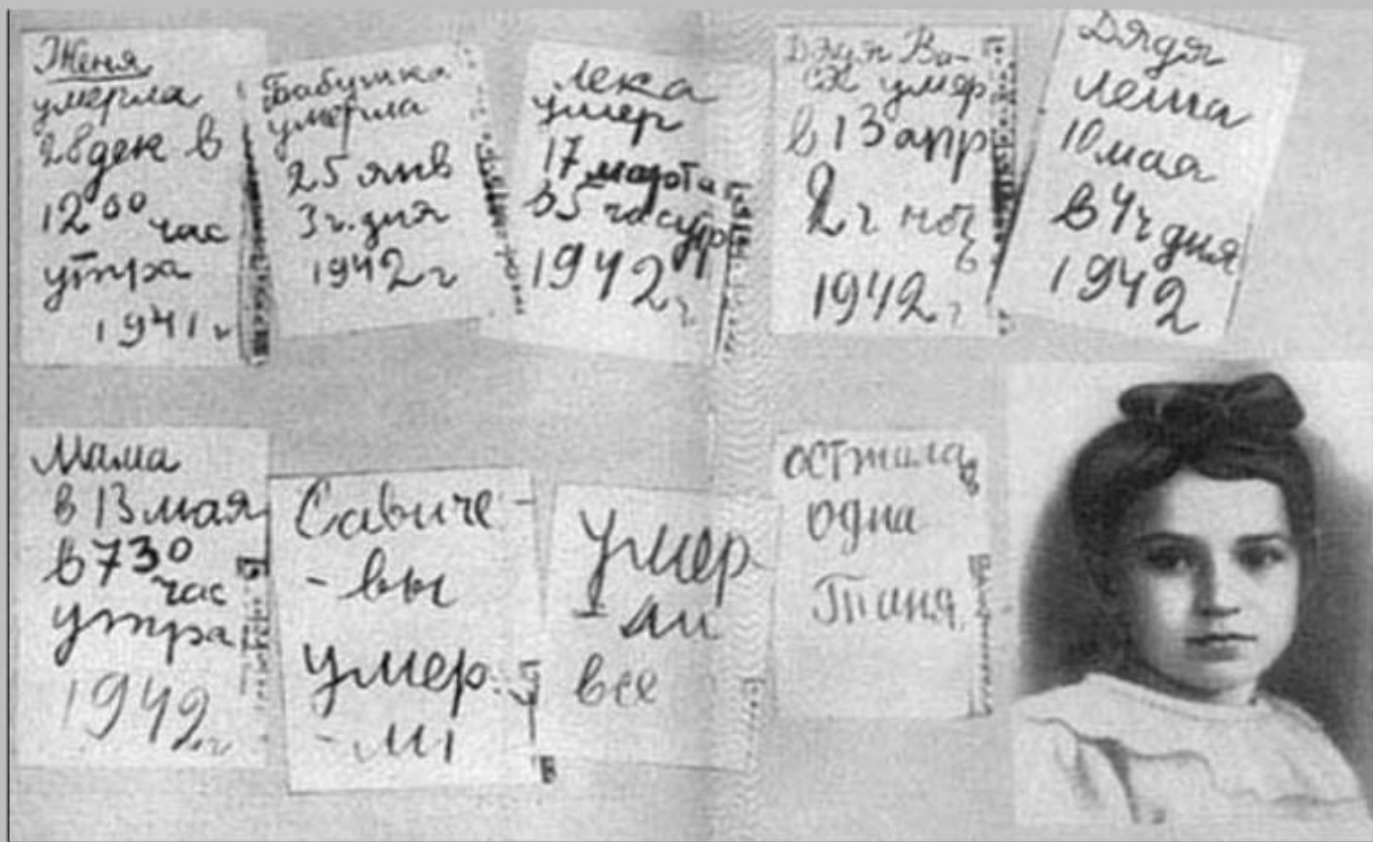 Женя
умерла
28 дек в
12 00 час
утра
1941 г
Бабушка
умерла
25 янв
3 ч. дня
1942 г
Лека
умер
17 марта
в 5 час утр
1942 г
Дядя Ва-
ся умер
в 13 апр
2 ч ноч
ь
1942 г
Дядя
Леша
10 мая
в 4 ч дня
1942
Мама
в 13 мая
в 7 30
час
утра
1942 г
Савиче-
- вы
умер
- ли
Умер
- ли
все
осталась
одна
Таня.